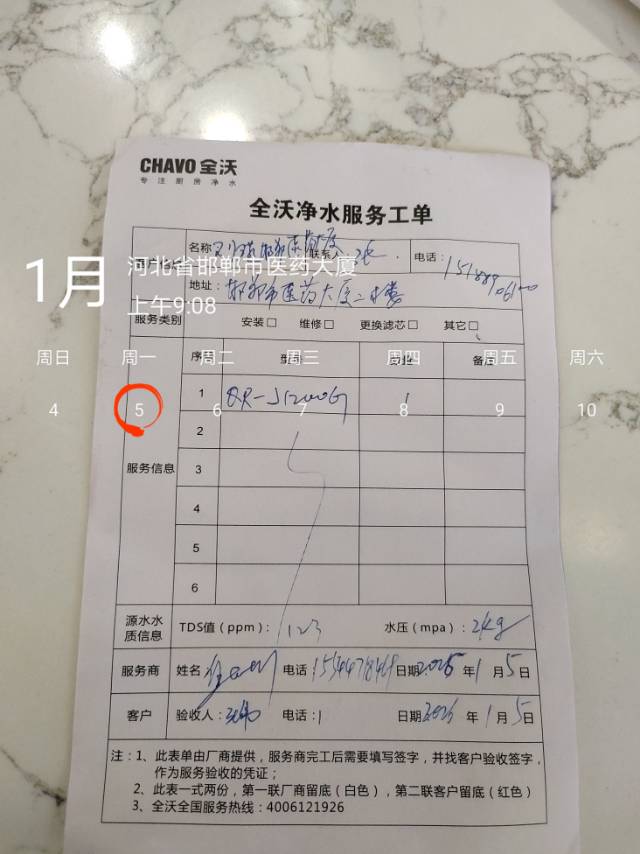 CHAVO 全沃
专注厨房净水
全沃净水服务工单
名称 联系人 电话：
1月
河北省邯郸市医药大厦
上午9:08
地址：邯郸市医药大厦二楼
服务类别 安装□ 维修□ 更换滤芯□ 其它□
周日 周一 周二 周三 周四 周五 周六
4 5 6 7 8 9 10
序号 型号 备注
1 1
2
服务信息 3
4
5
6
源水水质信息 TDS值（ppm）：123 水压（mpa）：2kg
服务商 姓名 电话 日期 年1月5日
客户 验收人： 电话： 日期 2026年1月5日
注：1、此表单由厂商提供，服务商完工后需要填写签字，并找客户验收签字，
作为服务验收的凭证；
2、此表一式两份，第一联厂商留底（白色），第二联客户留底（红色）
3、全沃全国服务热线：4006121926